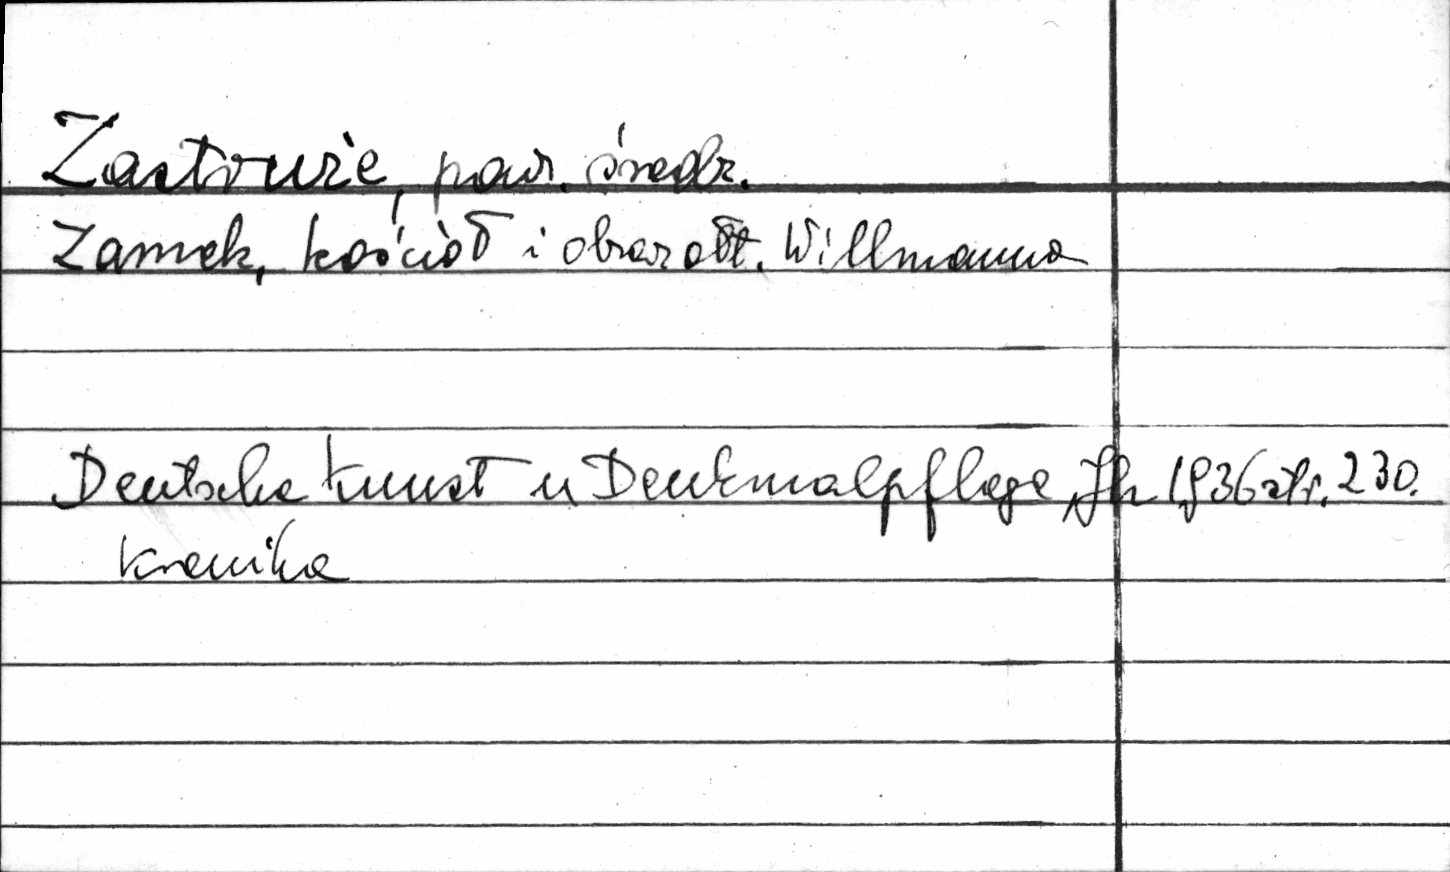 Zastruże, pow. średz.
Zamek, kościół i obraz ołt. Willmanna
Deutsche Kunst u Denkmalpflege, Jh 1936 str. 230.
Kronika